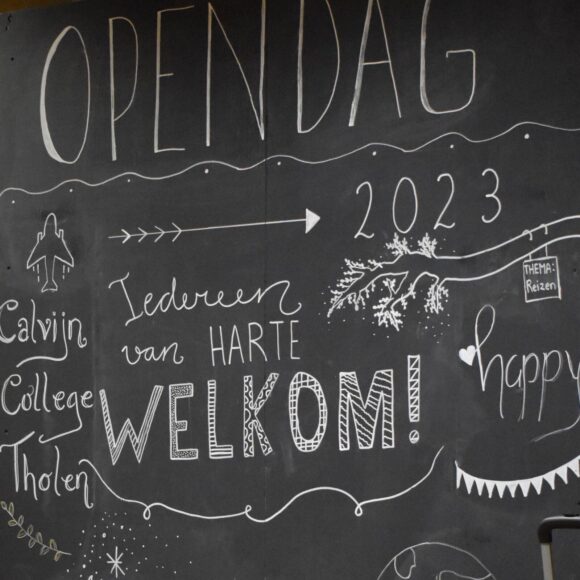 OPENDAG
2023
THEMA:
Reizen
Iedereen
van HARTE
WELKOM!
Calvijn
College
Tholen
happy